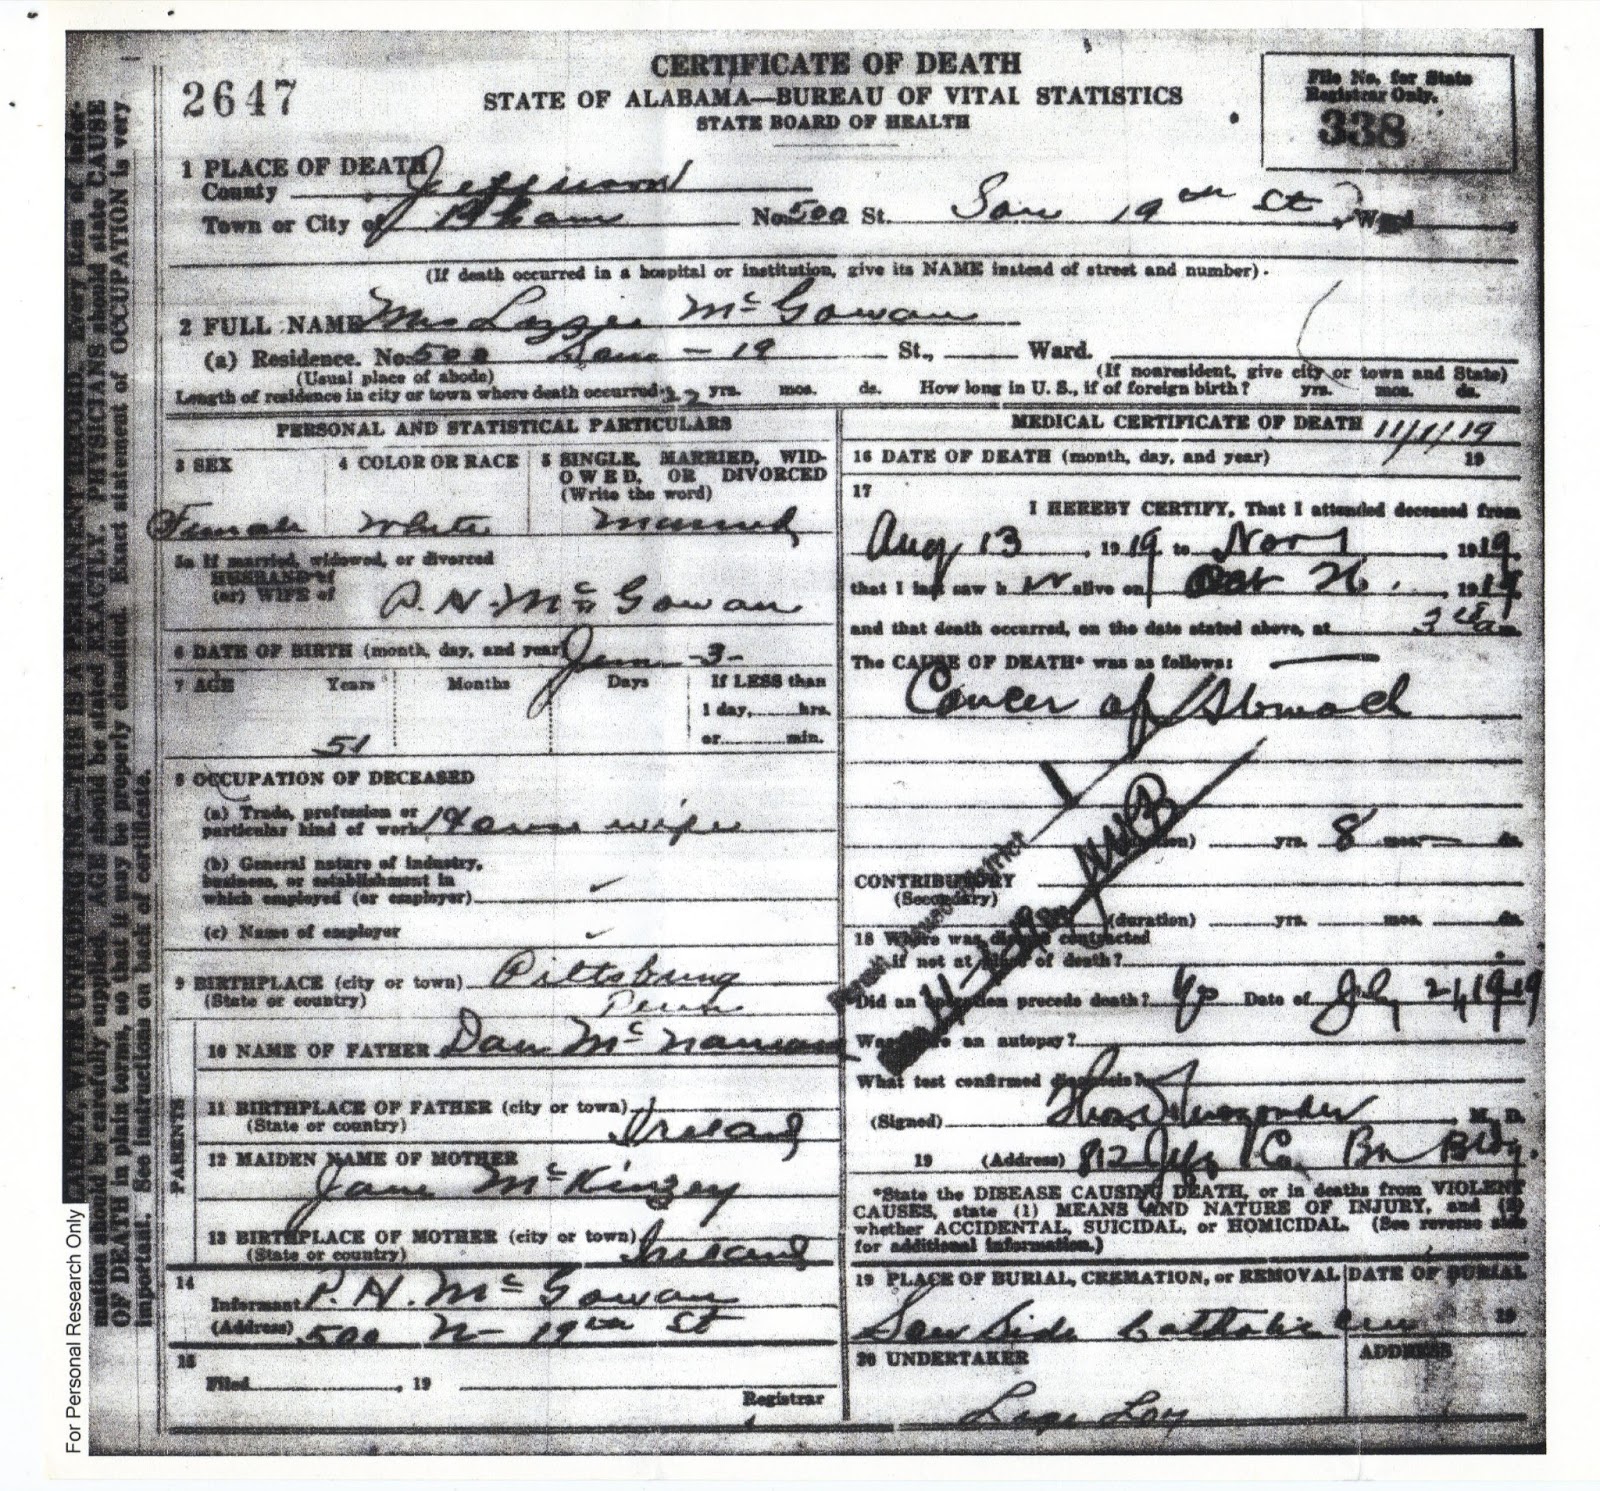 CERTIFICATE OF DEATH
STATE OF ALABAMA—BUREAU OF VITAL STATISTICS
STATE BOARD OF HEALTH
2647
File No. for State
Registrar Only.
338
1 PLACE OF DEATH
County Jefferson
Town or City of B'ham No. 500 St. Sou 19th St Ward
(If death occurred in a hospital or institution, give its NAME instead of street and number).
2 FULL NAME Mrs Lizzie McGowan
(a) Residence. No. 500 Sou - 19 St., Ward.
(Usual place of abode) (If nonresident, give city or town and State)
Length of residence in city or town where death occurred yrs. mos. ds. How long in U. S., if of foreign birth? yrs. mos. ds.
PERSONAL AND STATISTICAL PARTICULARS
3 SEX
Female
4 COLOR OR RACE
White
5 SINGLE, MARRIED, WID-
OWED, OR DIVORCED
(Write the word)
Married
5a If married, widowed, or divorced
HUSBAND of
(or) WIFE of P. H. McGowan
6 DATE OF BIRTH (month, day, and year) -3-
7 AGE Years Months Days If LESS than
1 day, hrs.
or min.
51
8 OCCUPATION OF DECEASED
(a) Trade, profession or
particular kind of work House wife
(b) General nature of industry,
business, or establishment in
which employed (or employer) ✓
(c) Name of employer ✓
9 BIRTHPLACE (city or town) Pittsburg
(State or country) Penn
PARENTS
10 NAME OF FATHER Dan
11 BIRTHPLACE OF FATHER (city or town)
(State or country) Ireland
12 MAIDEN NAME OF MOTHER
Jane McKinzey
13 BIRTHPLACE OF MOTHER (city or town)
(State or country) Ireland
14
Informant P. H. McGowan
(Address) 500 N- 19th St
15
Filed , 19
Registrar
MEDICAL CERTIFICATE OF DEATH
16 DATE OF DEATH (month, day, and year) 11/1/19 19
17
I HEREBY CERTIFY, That I attended deceased from
Aug 13, 1919 to Nov 1, 1919
that I last saw h alive on Oct , 1919
and that death occurred, on the date stated above, at 3 am
The CAUSE OF DEATH* was as follows:
Cancer of Stomach
yrs. 8 mos. ds.
CONTRIBUTORY
(Secondary)
(duration) yrs. mos. ds.
18 Where was disease contracted
if not at place of death?
Did an operation precede death? Yes Date of July 1919
Was there an autopsy?
What test confirmed diagnosis?
(Signed) M. D.
19 (Address) 812 Jeff Co Bn Bldg.
*State the DISEASE CAUSING DEATH, or in deaths from VIOLENT
CAUSES, state (1) MEANS AND NATURE OF INJURY, and (2)
whether ACCIDENTAL, SUICIDAL, or HOMICIDAL. (See reverse side
for additional information.)
19 PLACE OF BURIAL, CREMATION, or REMOVAL
Sou Side Catholic Cem
DATE OF BURIAL
19
20 UNDERTAKER
ADDRESS
For Personal Research Only
PLAINLY, WITH UNFADING INK—THIS IS A PERMANENT RECORD. Every item of infor-
mation should be carefully supplied. AGE should be stated EXACTLY. PHYSICIANS should state CAUSE
OF DEATH in plain terms, so that it may be properly classified. Exact statement of OCCUPATION is very
important. See instructions on back of certificate.